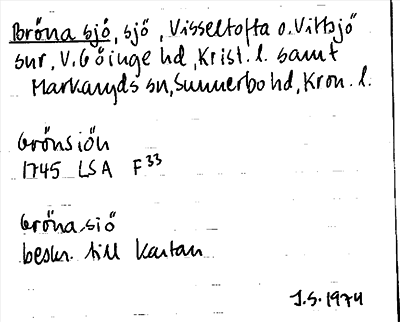 Gröna sjö, sjö, Visseltofta o. Vittsjö
snr, V. Göinge hd, Krist. l. samt
Markaryds sn, Sunnerbo hd, Kron. l.
Grönsiön
1745 LSA F 33
Gröna siö
beskr. till kartan
J.S. 1974